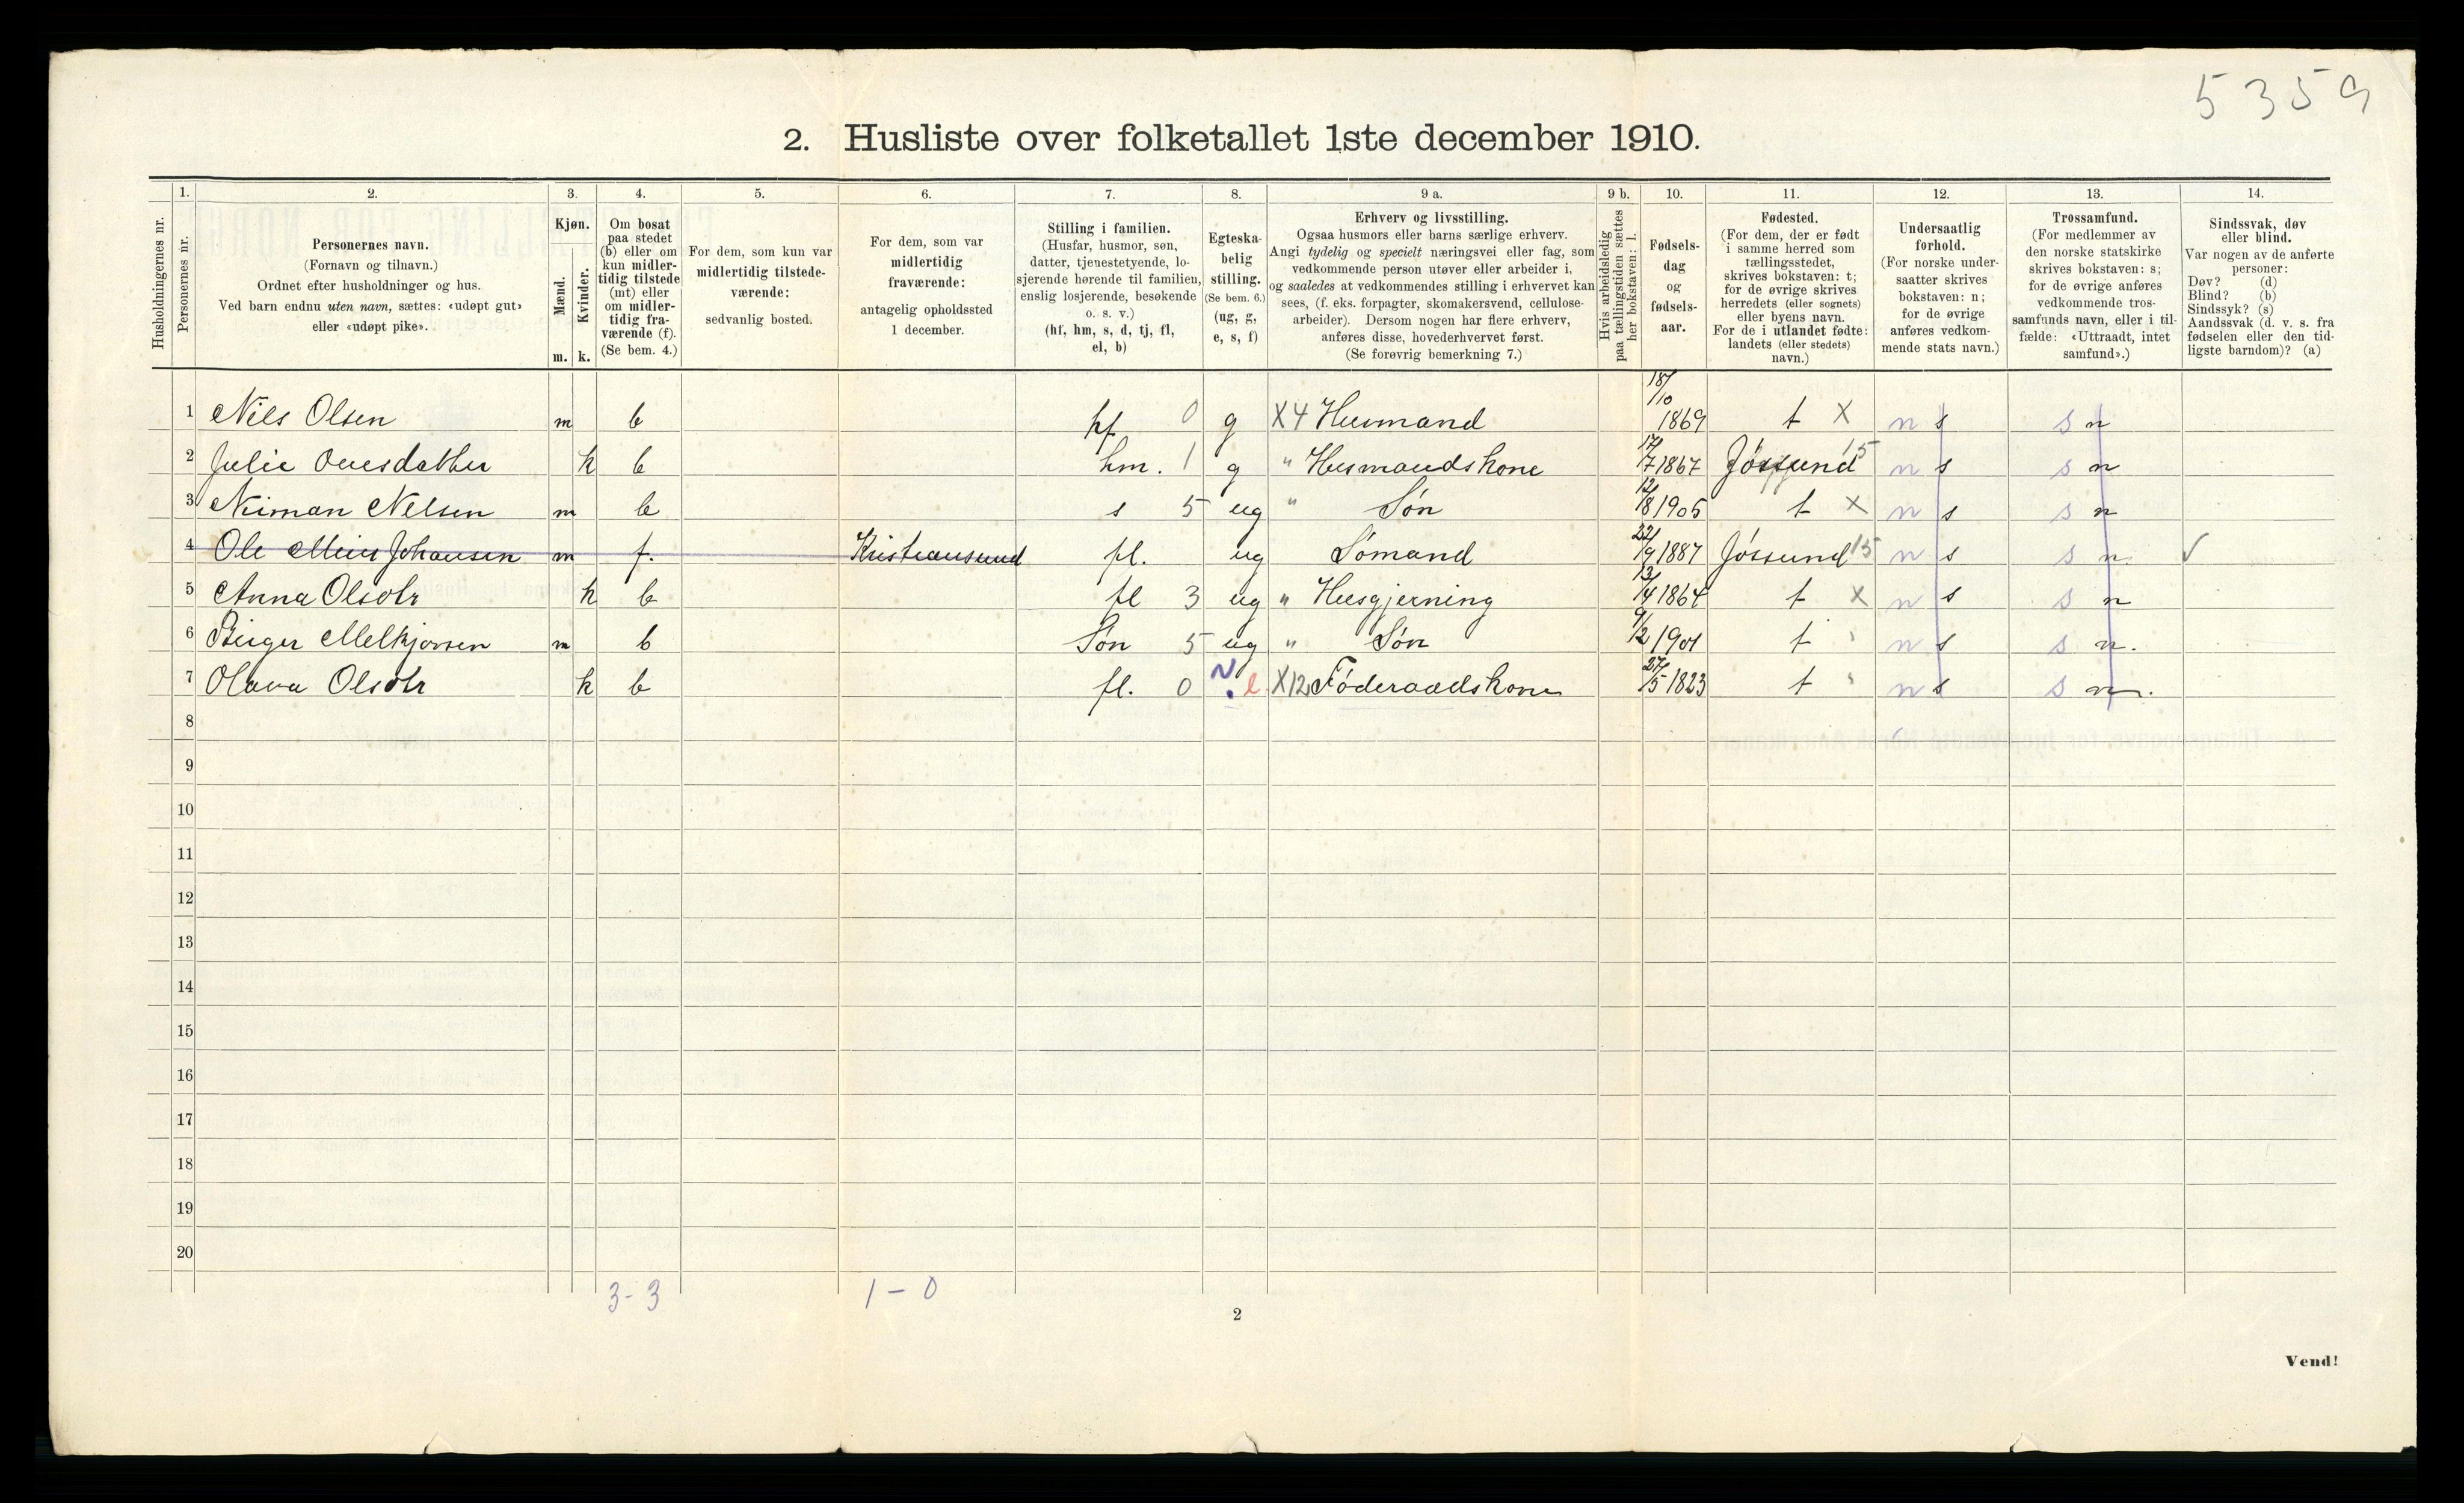 5359
2. Husliste over folketallet 1ste december 1910.
1. 2. 3. 4. 5. 6. 7. 8. 9 a. 9 b. 10. 11. 12. 13. 14.
Husholdningernes nr.
Personernes nr.
Personernes navn.
(Fornavn og tilnavn.)
Ordnet efter husholdninger og hus.
Ved barn endnu uten navn, sættes: «udøpt gut»
eller «udøpt pike».
Kjøn.
Mænd.
Kvinder.
m. k.
Om bosat
paa stedet
(b) eller om
kun midler-
tidig tilstede
(mt) eller
om midler-
tidig fra-
værende (f).
(Se bem. 4.)
For dem, som kun var
midlertidig tilstede-
værende:
sedvanlig bosted.
For dem, som var
midlertidig
fraværende:
antagelig opholdssted
1 december.
Stilling i familien.
(Husfar, husmor, søn,
datter, tjenestetyende, lo-
sjerende hørende til familien,
enslig losjerende, besøkende
o. s. v.)
(hf, hm, s, d, tj, fl,
el, b)
Egteska-
belig
stilling.
(Se bem. 6.)
(ug, g,
e, s, f)
Erhverv og livsstilling.
Ogsaa husmors eller barns særlige erhverv.
Angi tydelig og specielt næringsvei eller fag, som
vedkommende person utøver eller arbeider i,
og saaledes at vedkommendes stilling i erhvervet kan
sees, (f. eks. forpagter, skomakersvend, cellulose-
arbeider). Dersom nogen har flere erhverv,
anføres disse, hovederhvervet først.
(Se forøvrig bemerkning 7.)
Hvis arbeidsledig
paa tællingstiden sættes
her bokstaven: l.
Fødsels-
dag
og
fødsels-
aar.
Fødested.
(For dem, der er født
i samme herred som
tællingsstedet,
skrives bokstaven: t;
for de øvrige skrives
herredets (eller sognets)
eller byens navn.
For de i utlandet fødte:
landets (eller stedets)
navn.)
Undersaatlig
forhold.
(For norske under-
saatter skrives
bokstaven: n;
for de øvrige
anføres vedkom-
mende stats navn.)
Trossamfund.
(For medlemmer av
den norske statskirke
skrives bokstaven: s;
for de øvrige anføres
vedkommende tros-
samfunds navn, eller i til-
fælde: «Uttraadt, intet
samfund».)
Sindssvak, døv
eller blind.
Var nogen av de anførte
personer:
Døv? (d)
Blind? (b)
Sindssyk? (s)
Aandssvak (d. v. s. fra
fødselen eller den tid-
ligste barndom)? (a)
1 Nils Olsen m b hf 0 g X4 Husmand 18/10 1869 t X n s s n
2 Julie Ovesdatter k b hm. 1 g " Husmandskone 17/7 1867 Jössund 15 n s s n
3 Neiman Nelsen m b s 5 ug " Søn 12/8 1905 t X n s s n
4 Ole Johansen m f. Kristiansund fl. ug Sømand 22/9 1887 Jössund 15 n s s n. √
5 Anna Olsdtr k b fl 3 ug " Husgjerning 13/4 1864 t X n s s n
6 Birger Melkjorsen m b Søn 5 ug " Søn 9/2 1901 t n s s n.
7 Olava Olsdtr k b fl. 0 e X12 Föderaadskone 27/5 1823 t n s s n.
8
9
10
11
12
13
14
15
16
17
18
19
20
3-3 1-0
2
Vend!